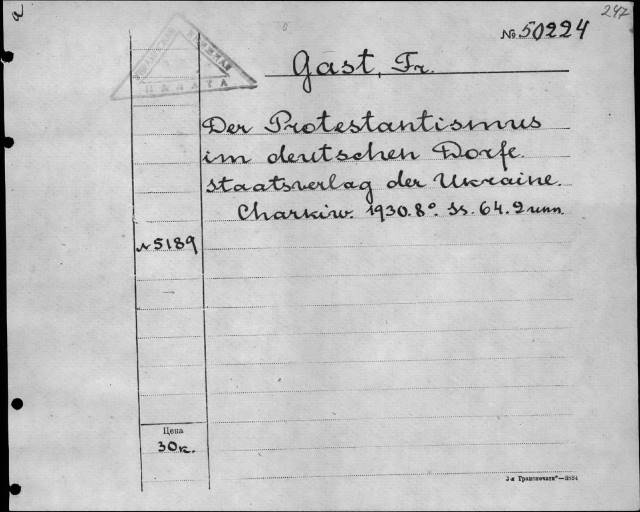 a
247
№ 50224
Gast, Fr.
КНИЖНАЯ
ПАЛАТА
Der Protestantismus
im deutschen Dorfe.
Staatsverlag der Ukraine.
Charkiw. 1930. 8°. Ss. 64. 2 unn.
№ 5189
Цена
30 к.